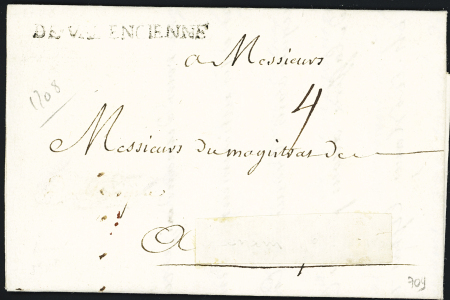 DE VALENCIENNE
a Messieurs
1708
4
Messieurs du magistrat de
A
709